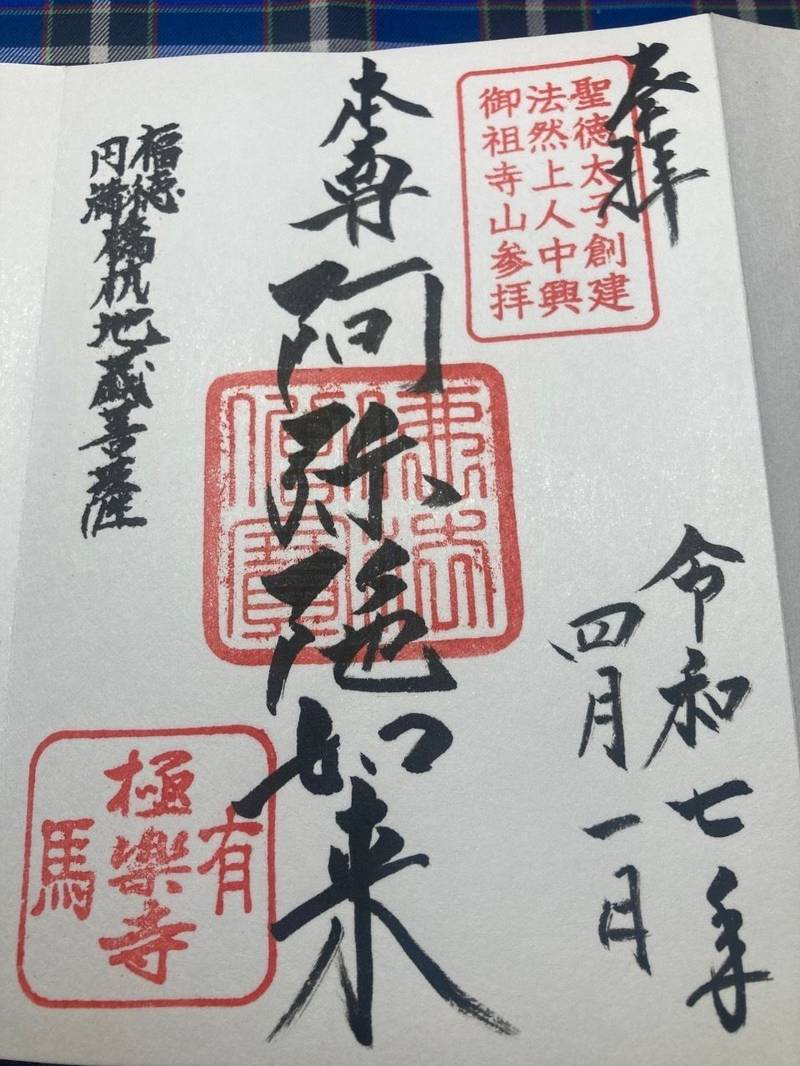 奉拝
聖徳太子創建
法然上人中興
御祖寺山参拝
令和七年
四月一日
本尊
阿弥陀如来
福徳
円満
橋杭地蔵菩薩
有馬
極楽寺
佛法僧寶